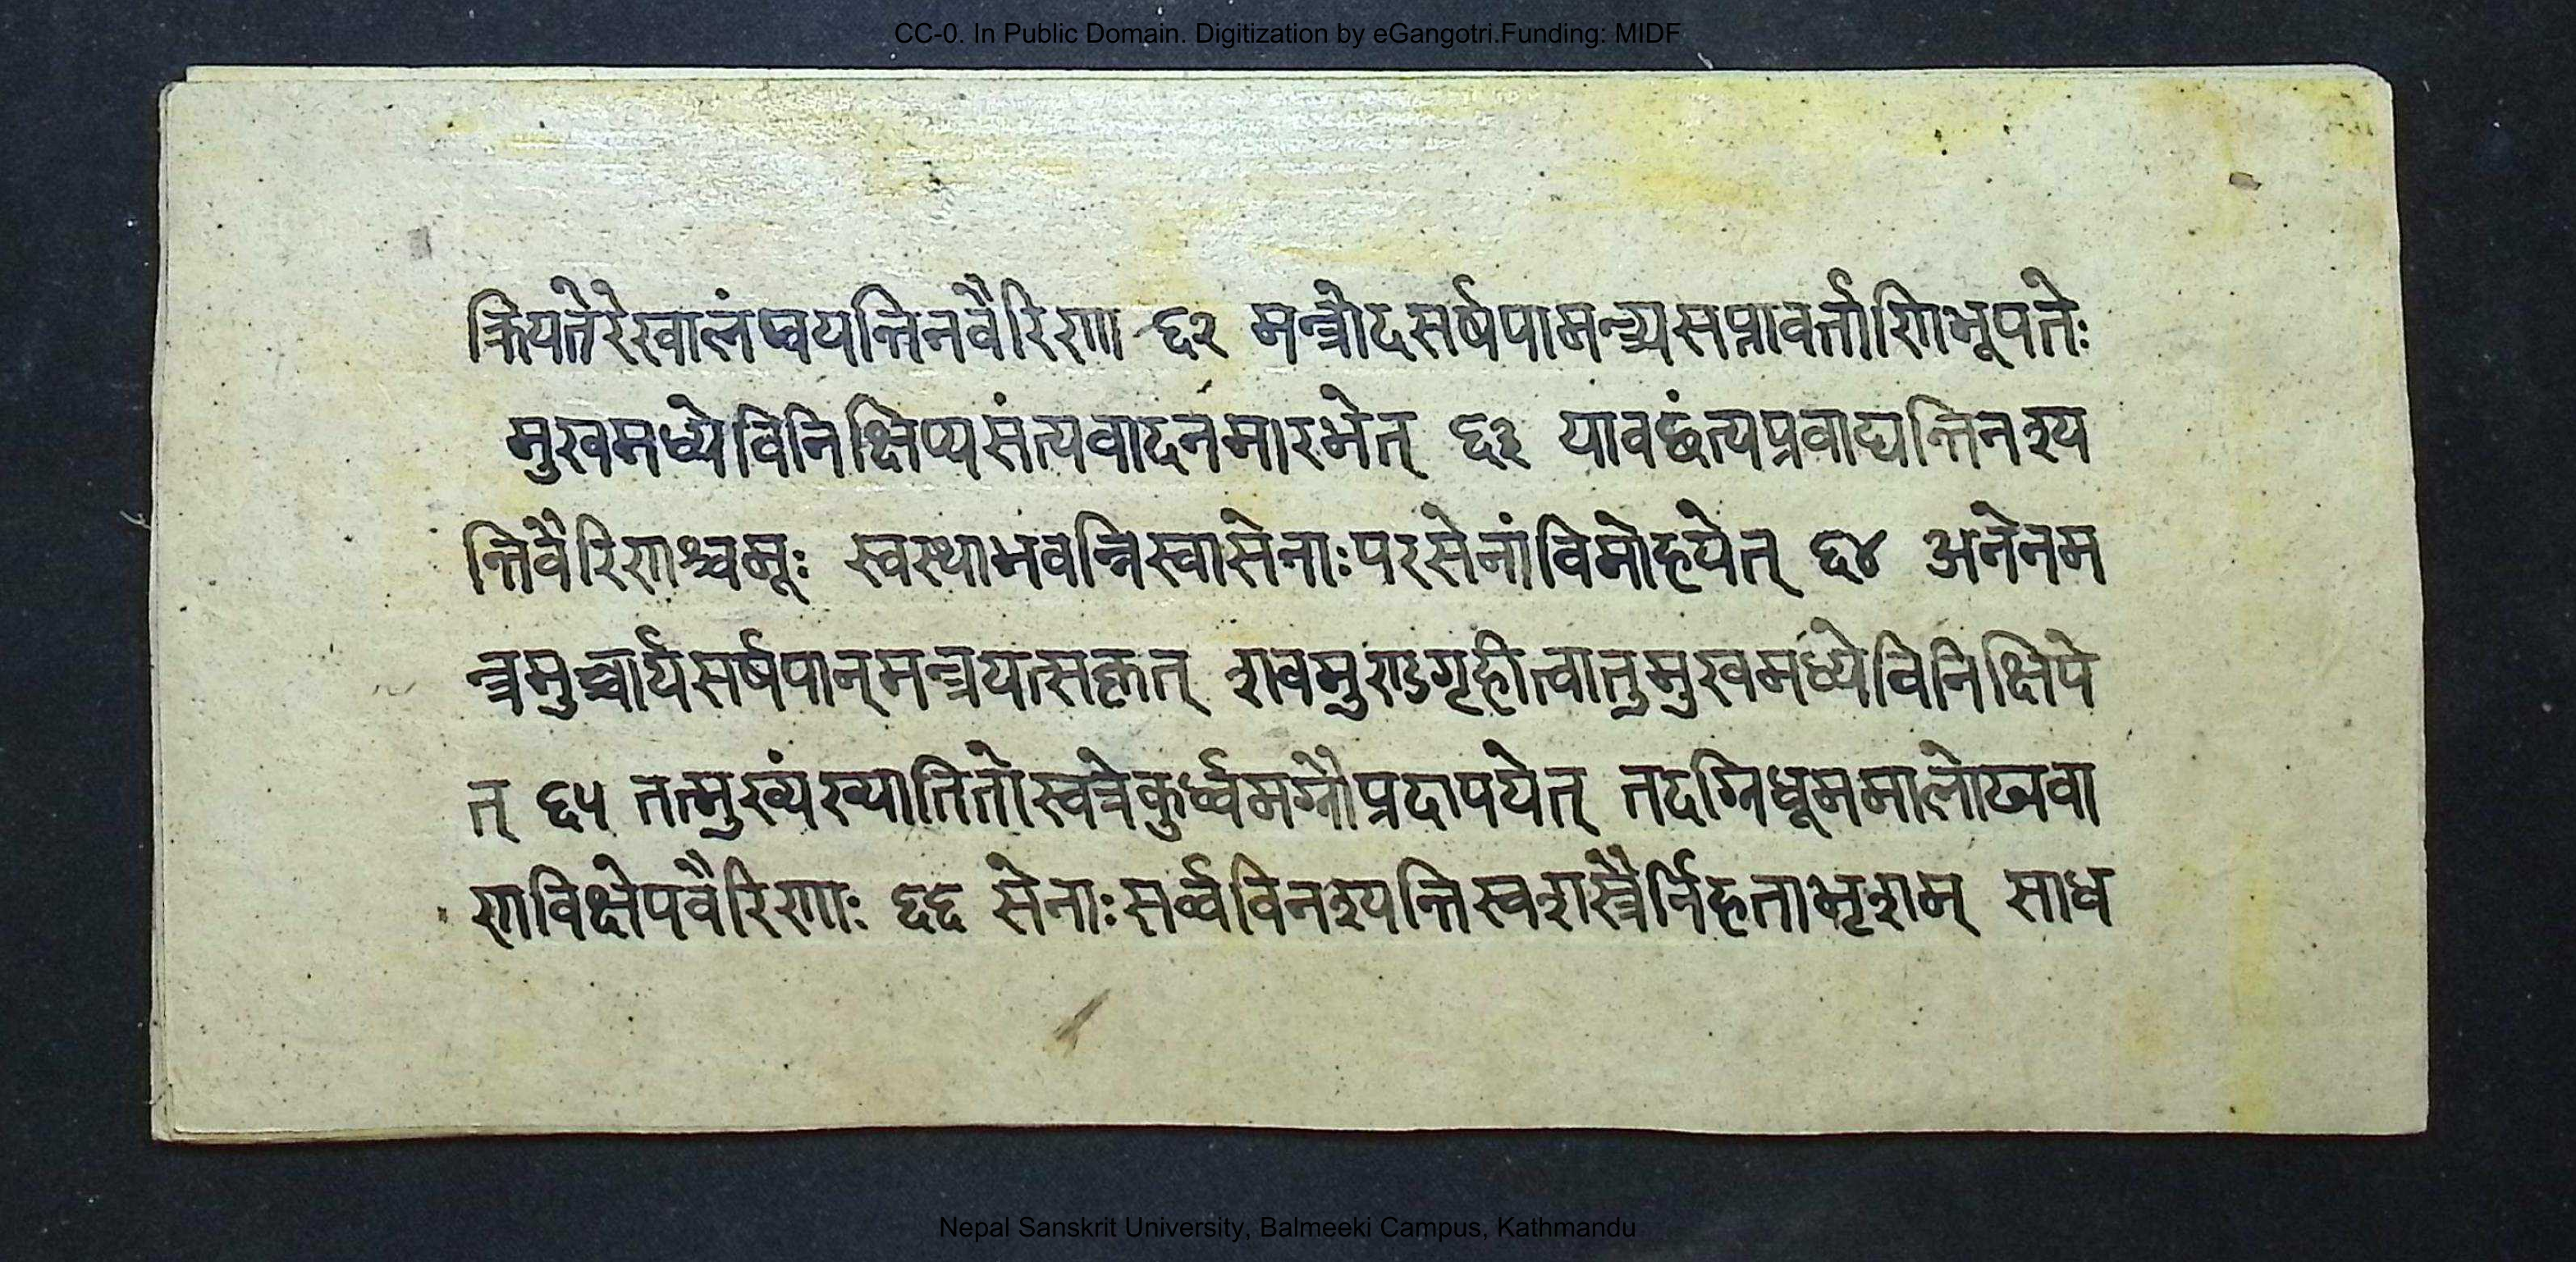 CC-0. In Public Domain. Digitization by eGangotri.Funding: MIDF
क्रियतेरेखालंघ्वयन्तिनवैरिणा ६२ मन्त्रोदसर्षपामन्त्र्यसप्तावर्त्ताणिभूपतेः
मुखमध्येविनिक्षिप्यसंत्यवादनमारभेत् ६३ यावछंत्यप्रवाद्यन्तिनश्य
न्तिवैरिणाश्चमूः स्वस्थाभवन्तिस्वासेनाःपरसेनांविमोहयेत् ६४ अनेनम
न्त्रमुच्चार्यसर्षपान्मन्त्रयत्सकृत् शवमुण्डगृहीत्वातुमुखमध्येविनिक्षिपे
त् ६५ तत्मुख्यंख्यातितोस्वत्रेकुर्ध्वमग्नौप्रदापयेत् तदग्निधूममालोख्यवा
णविक्षेपवैरिणाः ६६ सेनाःसर्व्वविनश्यन्तिस्वशस्त्रैर्निहताभृशम् साध
Nepal Sanskrit University, Balmeeki Campus, Kathmandu